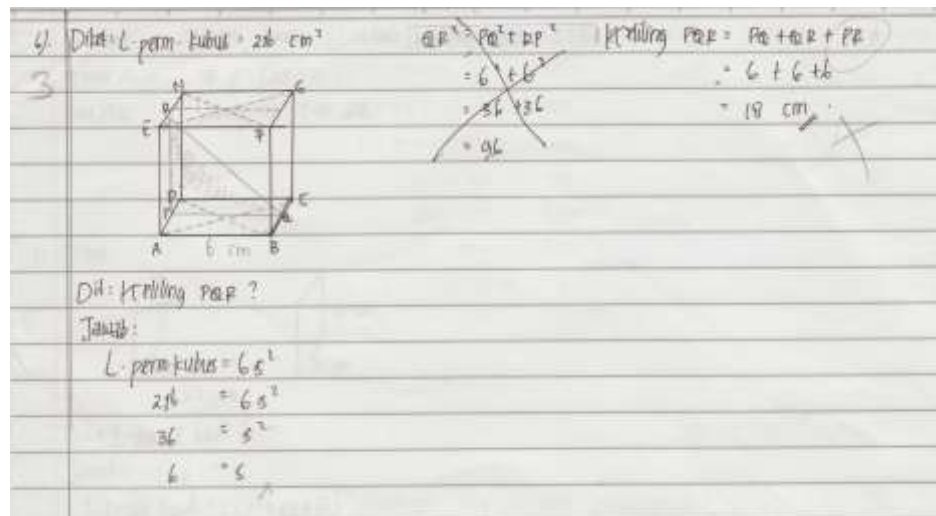 4). Diket: L. perm. kubus = 216 cm²
3
H G
R
E F
D C
P Q
A 6 cm B
Dit: Keliling PQR ?
Jawab:
L. perm kubus = 6 s²
216 = 6 s²
36 = s²
6 = s
QR² = PQ² + RP²
= 6² + 6²
= 36 + 36
= 96
Keliling PQR = PQ + QR + PR
= 6 + 6 + 6
= 18 cm